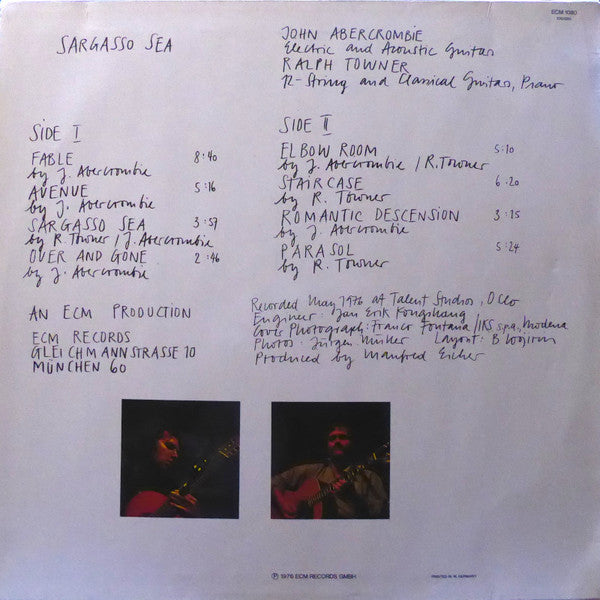 SARGASSO SEA
JOHN ABERCROMBIE
Electric and Acoustic Guitars
RALPH TOWNER
12-String and Classical Guitars, Piano
ECM 1080
SIDE I
FABLE 8:40
by J. Abercrombie
AVENUE 5:16
by J. Abercrombie
SARGASSO SEA 3:57
by R. Towner / J. Abercrombie
OVER AND GONE 2:46
by J. Abercrombie
SIDE II
ELBOW ROOM 5:10
by J. Abercrombie / R. Towner
STAIRCASE 6:20
by R. Towner
ROMANTIC DESCENSION 3:15
by J. Abercrombie
PARASOL 5:24
by R. Towner
AN ECM PRODUCTION
ECM RECORDS
GLEICHMANNSTRASSE 10
MÜNCHEN 60
Recorded May 1976 at Talent Studios, Oslo
Engineer: Jan Erik Kongshaug
Cover Photograph: Franco Fontana / IKS s.p.a., Modena
Photos: Jürgen Layout: B Wojirsch
Produced by Manfred Eicher
℗ 1976 ECM RECORDS GMBH
PRINTED IN W. GERMANY